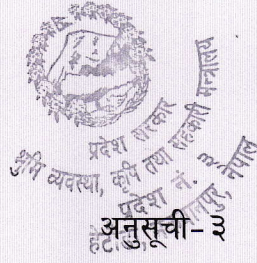 प्रदेश सरकार
भूमि व्यवस्था, कृषि तथा सहकारी मन्त्रालय
प्रदेश नं. ३
नेपाल
अनुसूची- ३